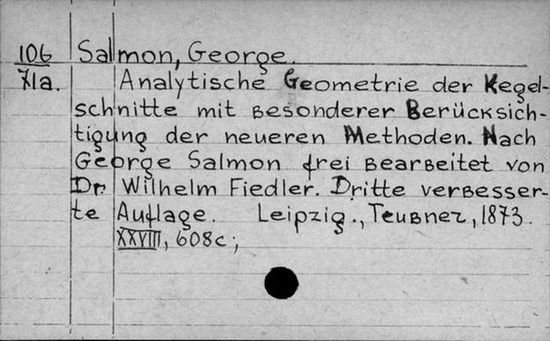 106 Salmon, George.
71a. Analytische Geometrie der Kegel-
schnitte mit besonderer Berücksich-
tigung der neueren Methoden. Nach
George Salmon frei bearbeitet von
Dr. Wilhelm Fiedler. Dritte verbesser-
te Auflage. Leipzig., Teubner, 1873.
XXVIII, 608c;